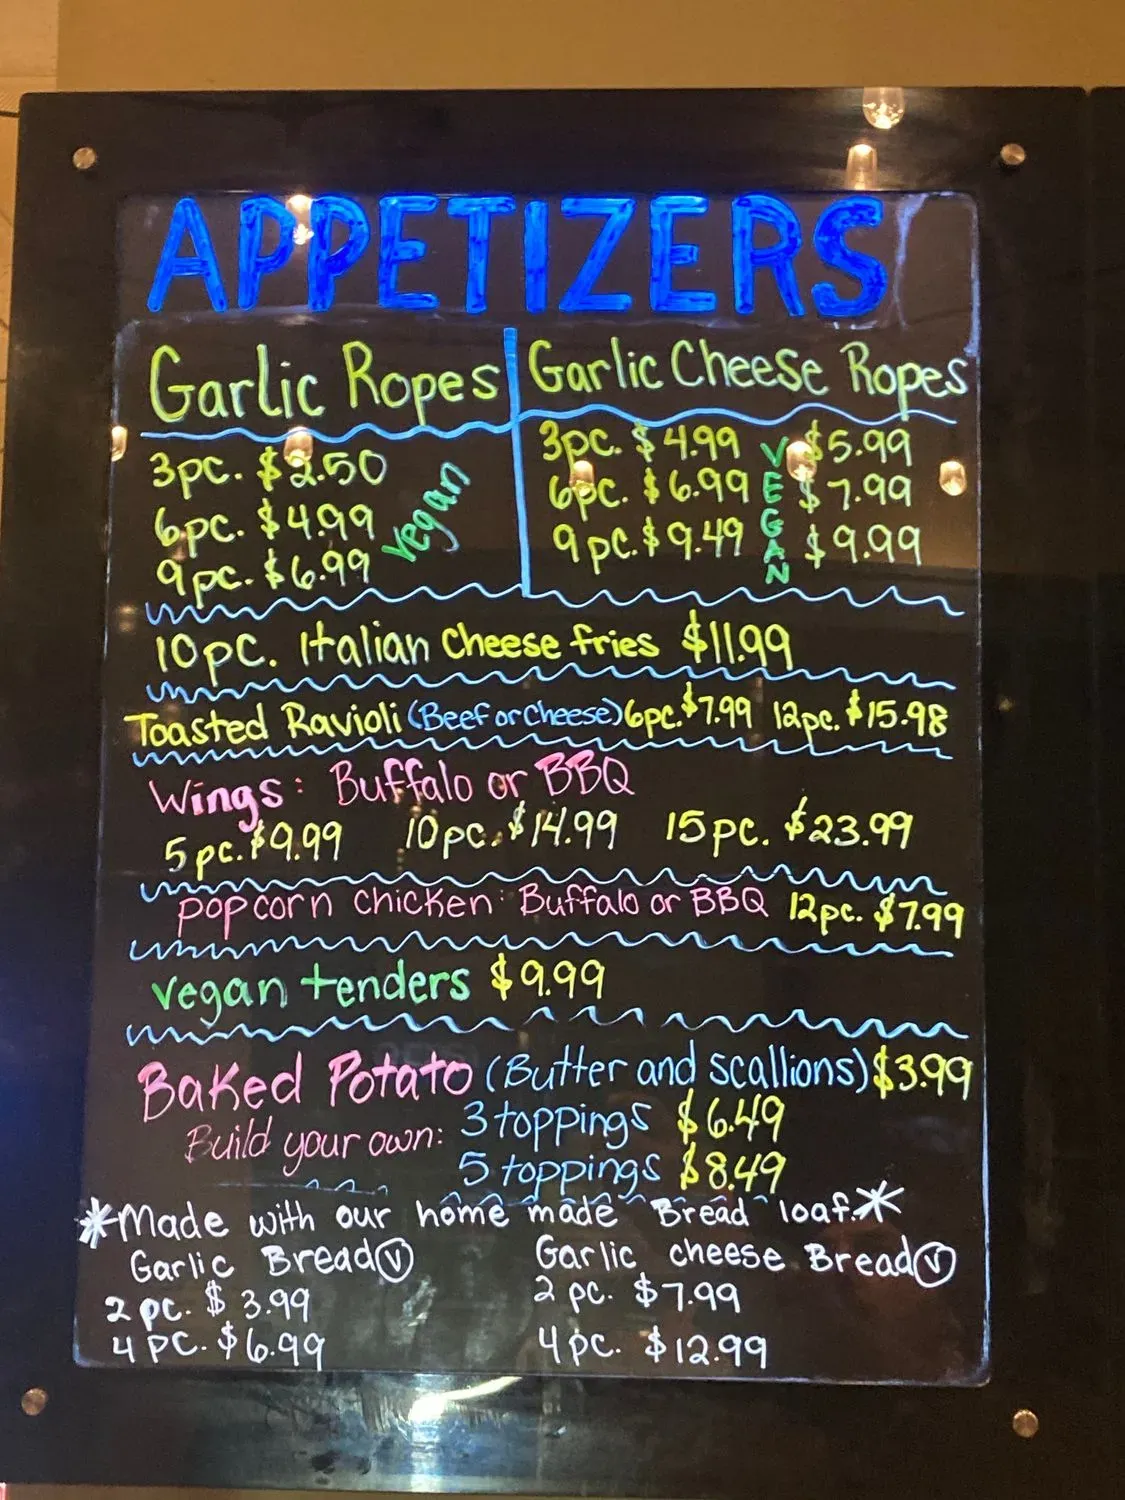 APPETIZERS
Garlic Ropes
3pc. $2.50
6pc. $4.99
9pc. $6.99
vegan
Garlic Cheese Ropes
3pc. $4.99 VEGAN $5.99
6pc. $6.99 $7.99
9pc. $9.49 $9.99
10pc. Italian cheese fries $11.99
Toasted Ravioli (Beef or cheese) 6pc. $7.99 12pc. $15.98
Wings: Buffalo or BBQ
5pc. $9.99 10pc. $14.99 15pc. $23.99
popcorn chicken: Buffalo or BBQ 12pc. $7.99
vegan tenders $9.99
Baked Potato (Butter and scallions) $3.99
Build your own: 3 toppings $6.49
5 toppings $8.49
*Made with our home made Bread loaf.*
Garlic Bread Ⓥ
2 pc. $3.99
4 pc. $6.99
Garlic cheese Bread Ⓥ
2 pc. $7.99
4pc. $12.99